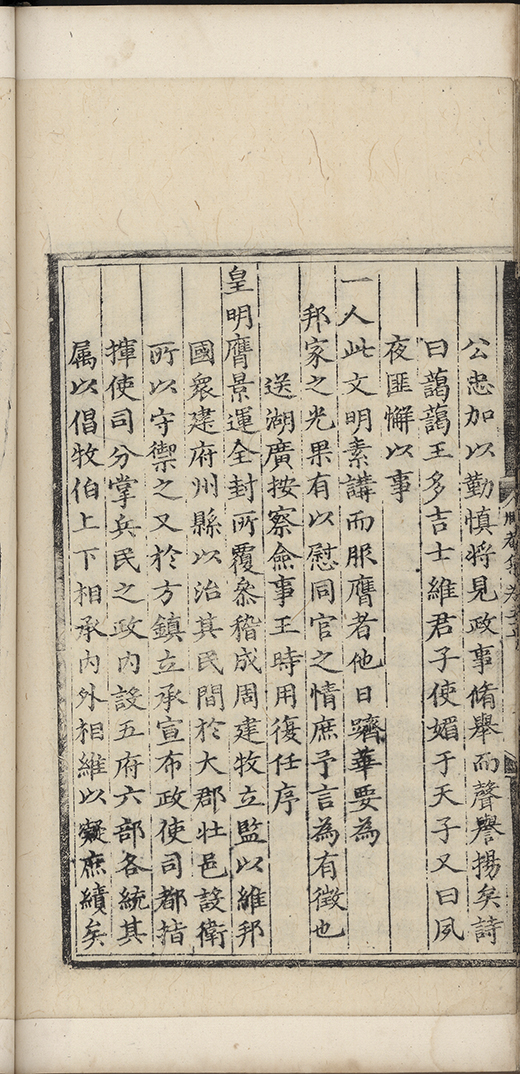 公忠加以勤慎将見政事脩舉而聲譽揚矣詩
曰藹藹王多吉士維君子使媚于天子又曰夙
夜匪懈以事
一人此文明素講而服膺者他日躋華要為
邦家之光果有以慰同官之情庶予言為有徵也
送湖廣按察僉事王時用復任序
皇明膺景運全封所覆叅稽成周建牧立監以維邦
國衆建府州縣以治其民間於大郡壯邑設衛
所以守禦之又於方鎮立承宣布政使司都指
揮使司分掌兵民之政内設五府六部各統其
属以倡牧伯上下相承内外相維以凝庶績矣